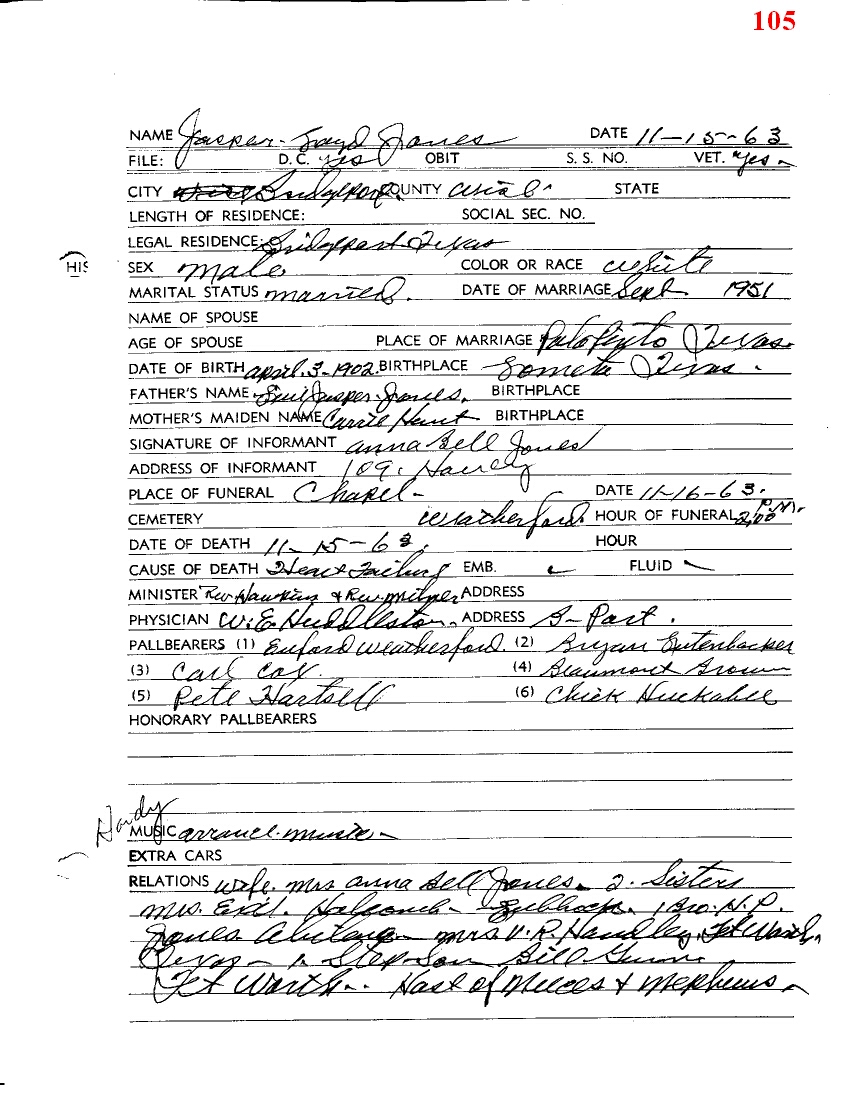 105
NAME Jasper Loyd Jones DATE 11-15-63
FILE: D.C. yes OBIT S. S. NO. VET. Yes
CITY Bridgeport COUNTY STATE
LENGTH OF RESIDENCE: SOCIAL SEC. NO.
LEGAL RESIDENCE: Bridgeport Texas
HIS
SEX male COLOR OR RACE white
MARITAL STATUS married. DATE OF MARRIAGE Sept 1951
NAME OF SPOUSE
AGE OF SPOUSE PLACE OF MARRIAGE Palo Pinto Texas
DATE OF BIRTH april. 3-1902 BIRTHPLACE Lometa Texas.
FATHER'S NAME Jasper Jones. BIRTHPLACE
MOTHER'S MAIDEN NAME Carrie Hunt BIRTHPLACE
SIGNATURE OF INFORMANT anna Bell Jones
ADDRESS OF INFORMANT 109.
PLACE OF FUNERAL Chapel- DATE 11-16-63.
CEMETERY Weatherford. HOUR OF FUNERAL 2;00 P.M.
DATE OF DEATH 11-15-63. HOUR
CAUSE OF DEATH Heart Failure EMB. FLUID
MINISTER Rev Hawkins & Rev. Milner ADDRESS
PHYSICIAN W.E. Huddleston, ADDRESS B-Port.
PALLBEARERS (1) Euford Weatherford. (2) Bryan
(3) Carl Cox. (4) Beaumont Brown
(5) Pete Hartsell (6) Chick Huckabee
HONORARY PALLBEARERS
Hardy
MUSIC music-
EXTRA CARS
RELATIONS wife. Mrs anna Bell Jones. 2. Sisters
Mrs. Holcomb- 1 Bro. H.P.
Jones Abilene- Mrs. V.R. Handley, Ft Worth,
Texas- 1. Step-Son Bill
Ft Worth-. Host of Nieces & Nephews.